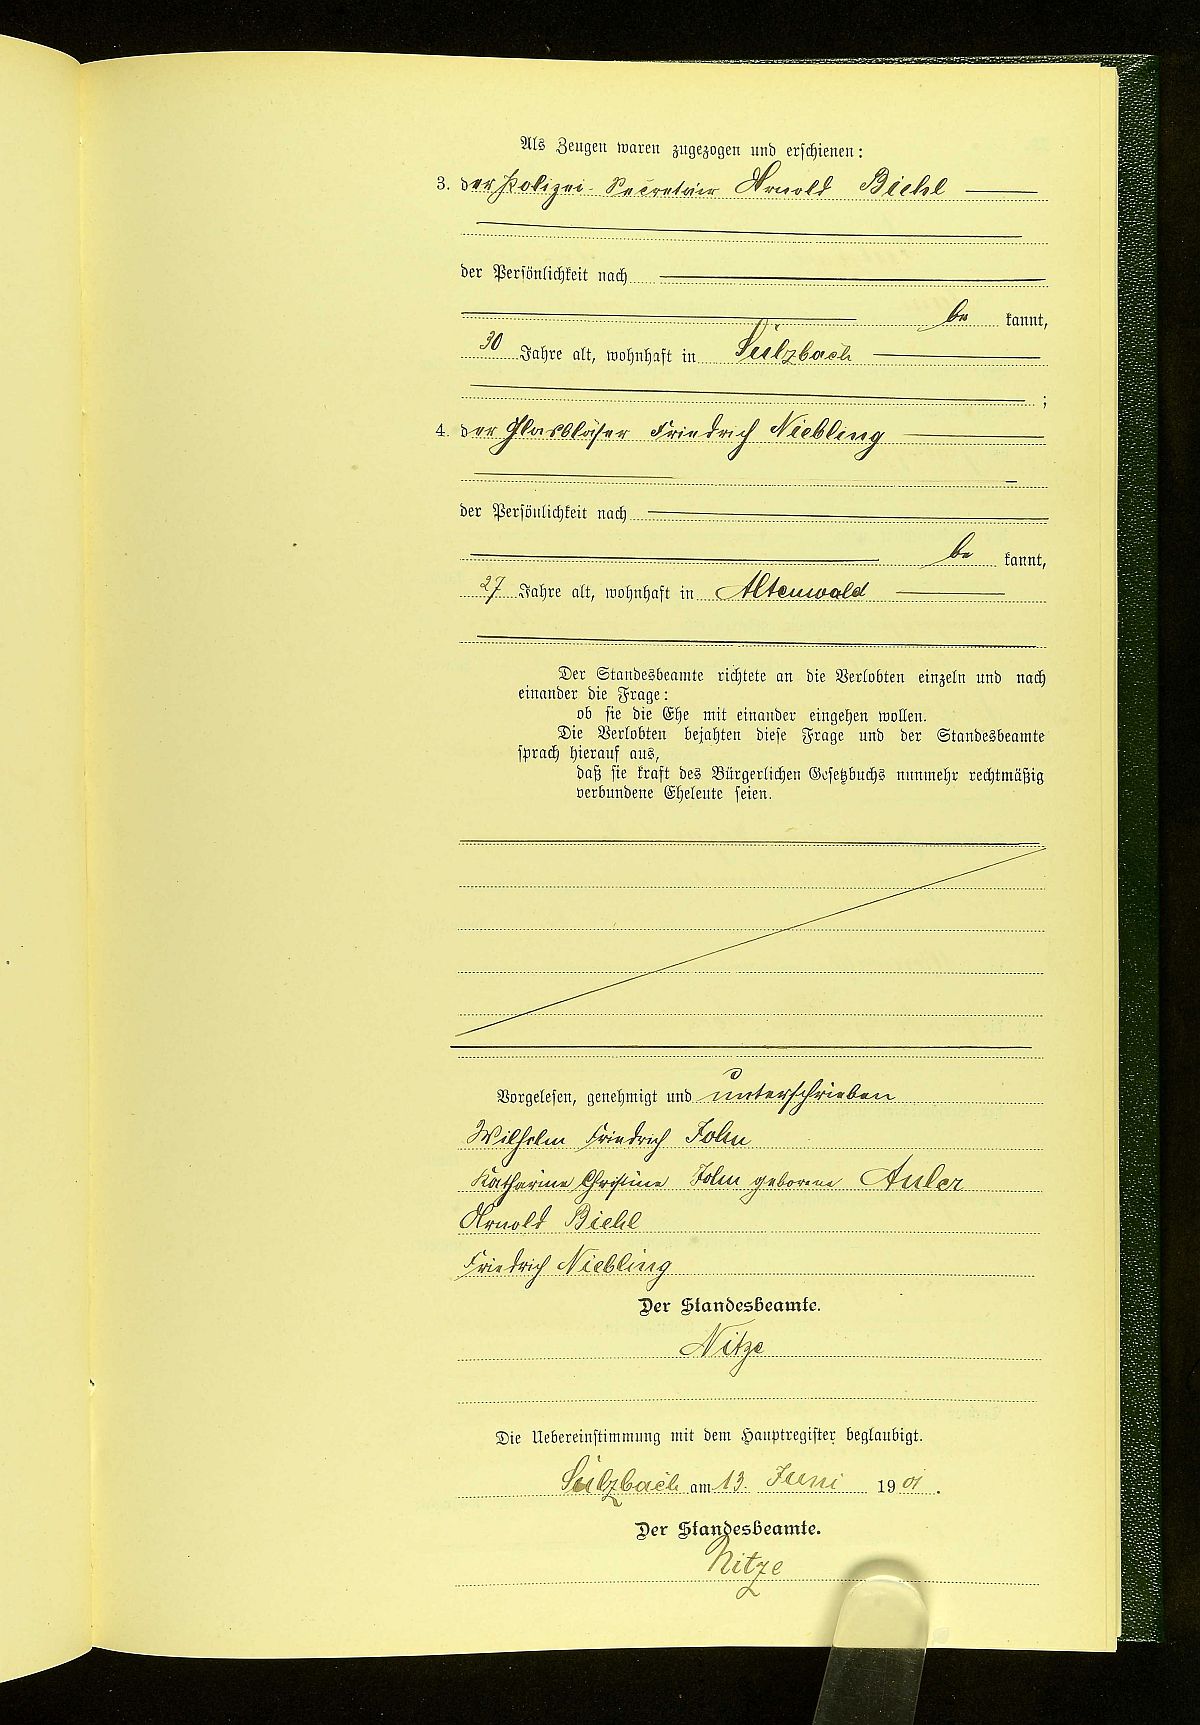 Als Zeugen waren zugezogen und erschienen:
3. der Polizei-Secretär Arnold Biehl
der Persönlichkeit nach
be kannt,
30 Jahre alt, wohnhaft in Sulzbach
;
4. der Glasbläser Friedrich Niebling
der Persönlichkeit nach
be kannt,
27 Jahre alt, wohnhaft in Altenwald
Der Standesbeamte richtete an die Verlobten einzeln und nach
einander die Frage:
ob sie die Ehe mit einander eingehen wollen.
Die Verlobten bejahten diese Frage und der Standesbeamte
sprach hierauf aus,
daß sie kraft des Bürgerlichen Gesetzbuchs nunmehr rechtmäßig
verbundene Eheleute seien.
Vorgelesen, genehmigt und unterschrieben
Wilhelm Friedrich John
Katharine Christine John geborene Auler
Arnold Biehl
Friedrich Niebling
Der Standesbeamte.
Nitze
Die Uebereinstimmung mit dem Hauptregister beglaubigt.
Sulzbach am 13. Juni 1901.
Der Standesbeamte.
Nitze